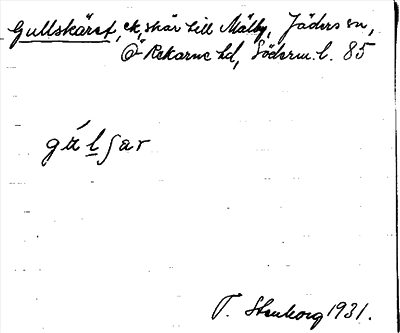 Gullskäret, ek, skär till Mälby, Jäders sn,
Ö Rekarne hd, Söderm. l. 85
gʉ́lʃar
T. Stenborg 1931.